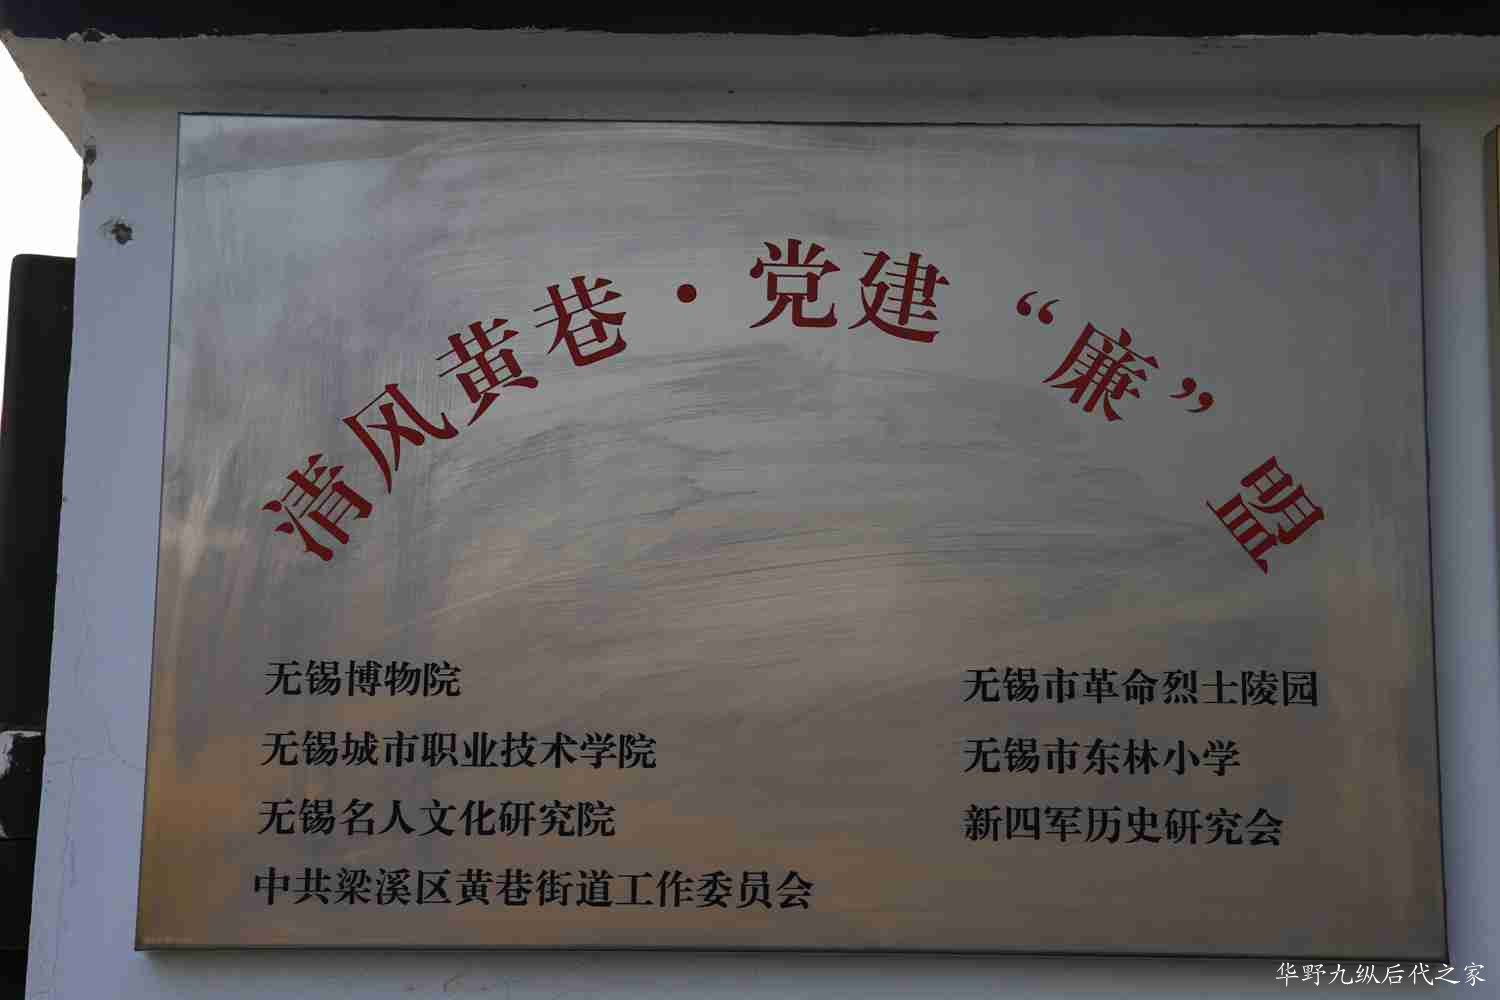 清风黄巷·党建“廉”盟
无锡博物院
无锡市革命烈士陵园
无锡城市职业技术学院
无锡市东林小学
无锡名人文化研究院
新四军历史研究会
中共梁溪区黄巷街道工作委员会
华野九纵后代之家